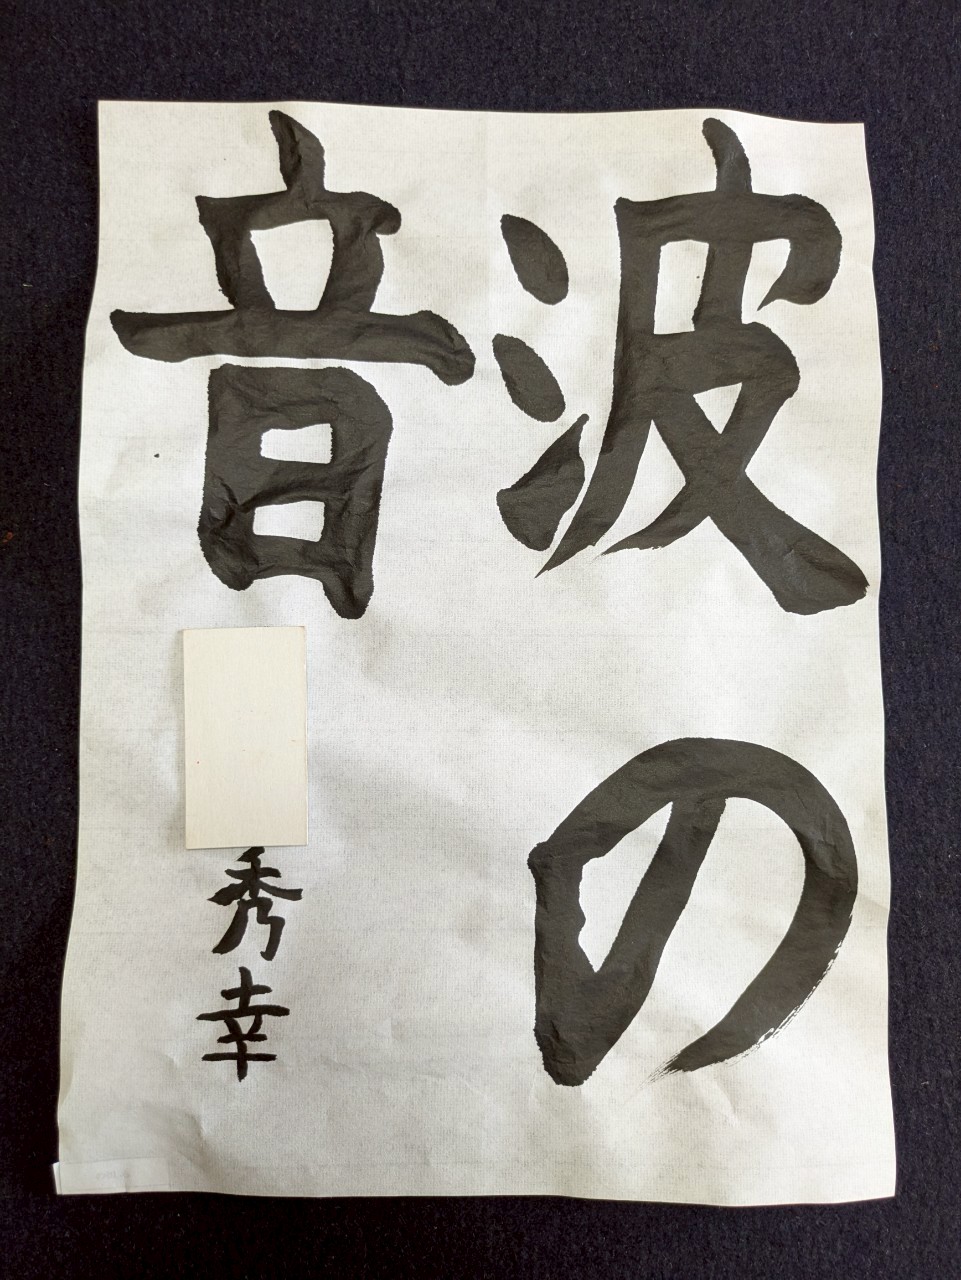 波の
音
秀幸